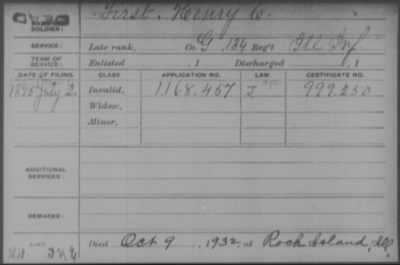 First, Henry C.
SOLDIER:
SERVICE: Late rank, Co. G, 134 Reg't Ill Inf
TERM OF SERVICE: Enlisted , 1 Discharged , 1
DATE OF FILING. CLASS APPLICATION NO. LAW. CERTIFICATE NO.
1895 July 2 Invalid, 1168.457 999.250
Widow,
Minor,
ADDITIONAL SERVICES:
REMARKS:
Died Oct. 9, 1932, at Rock Island, Ill.